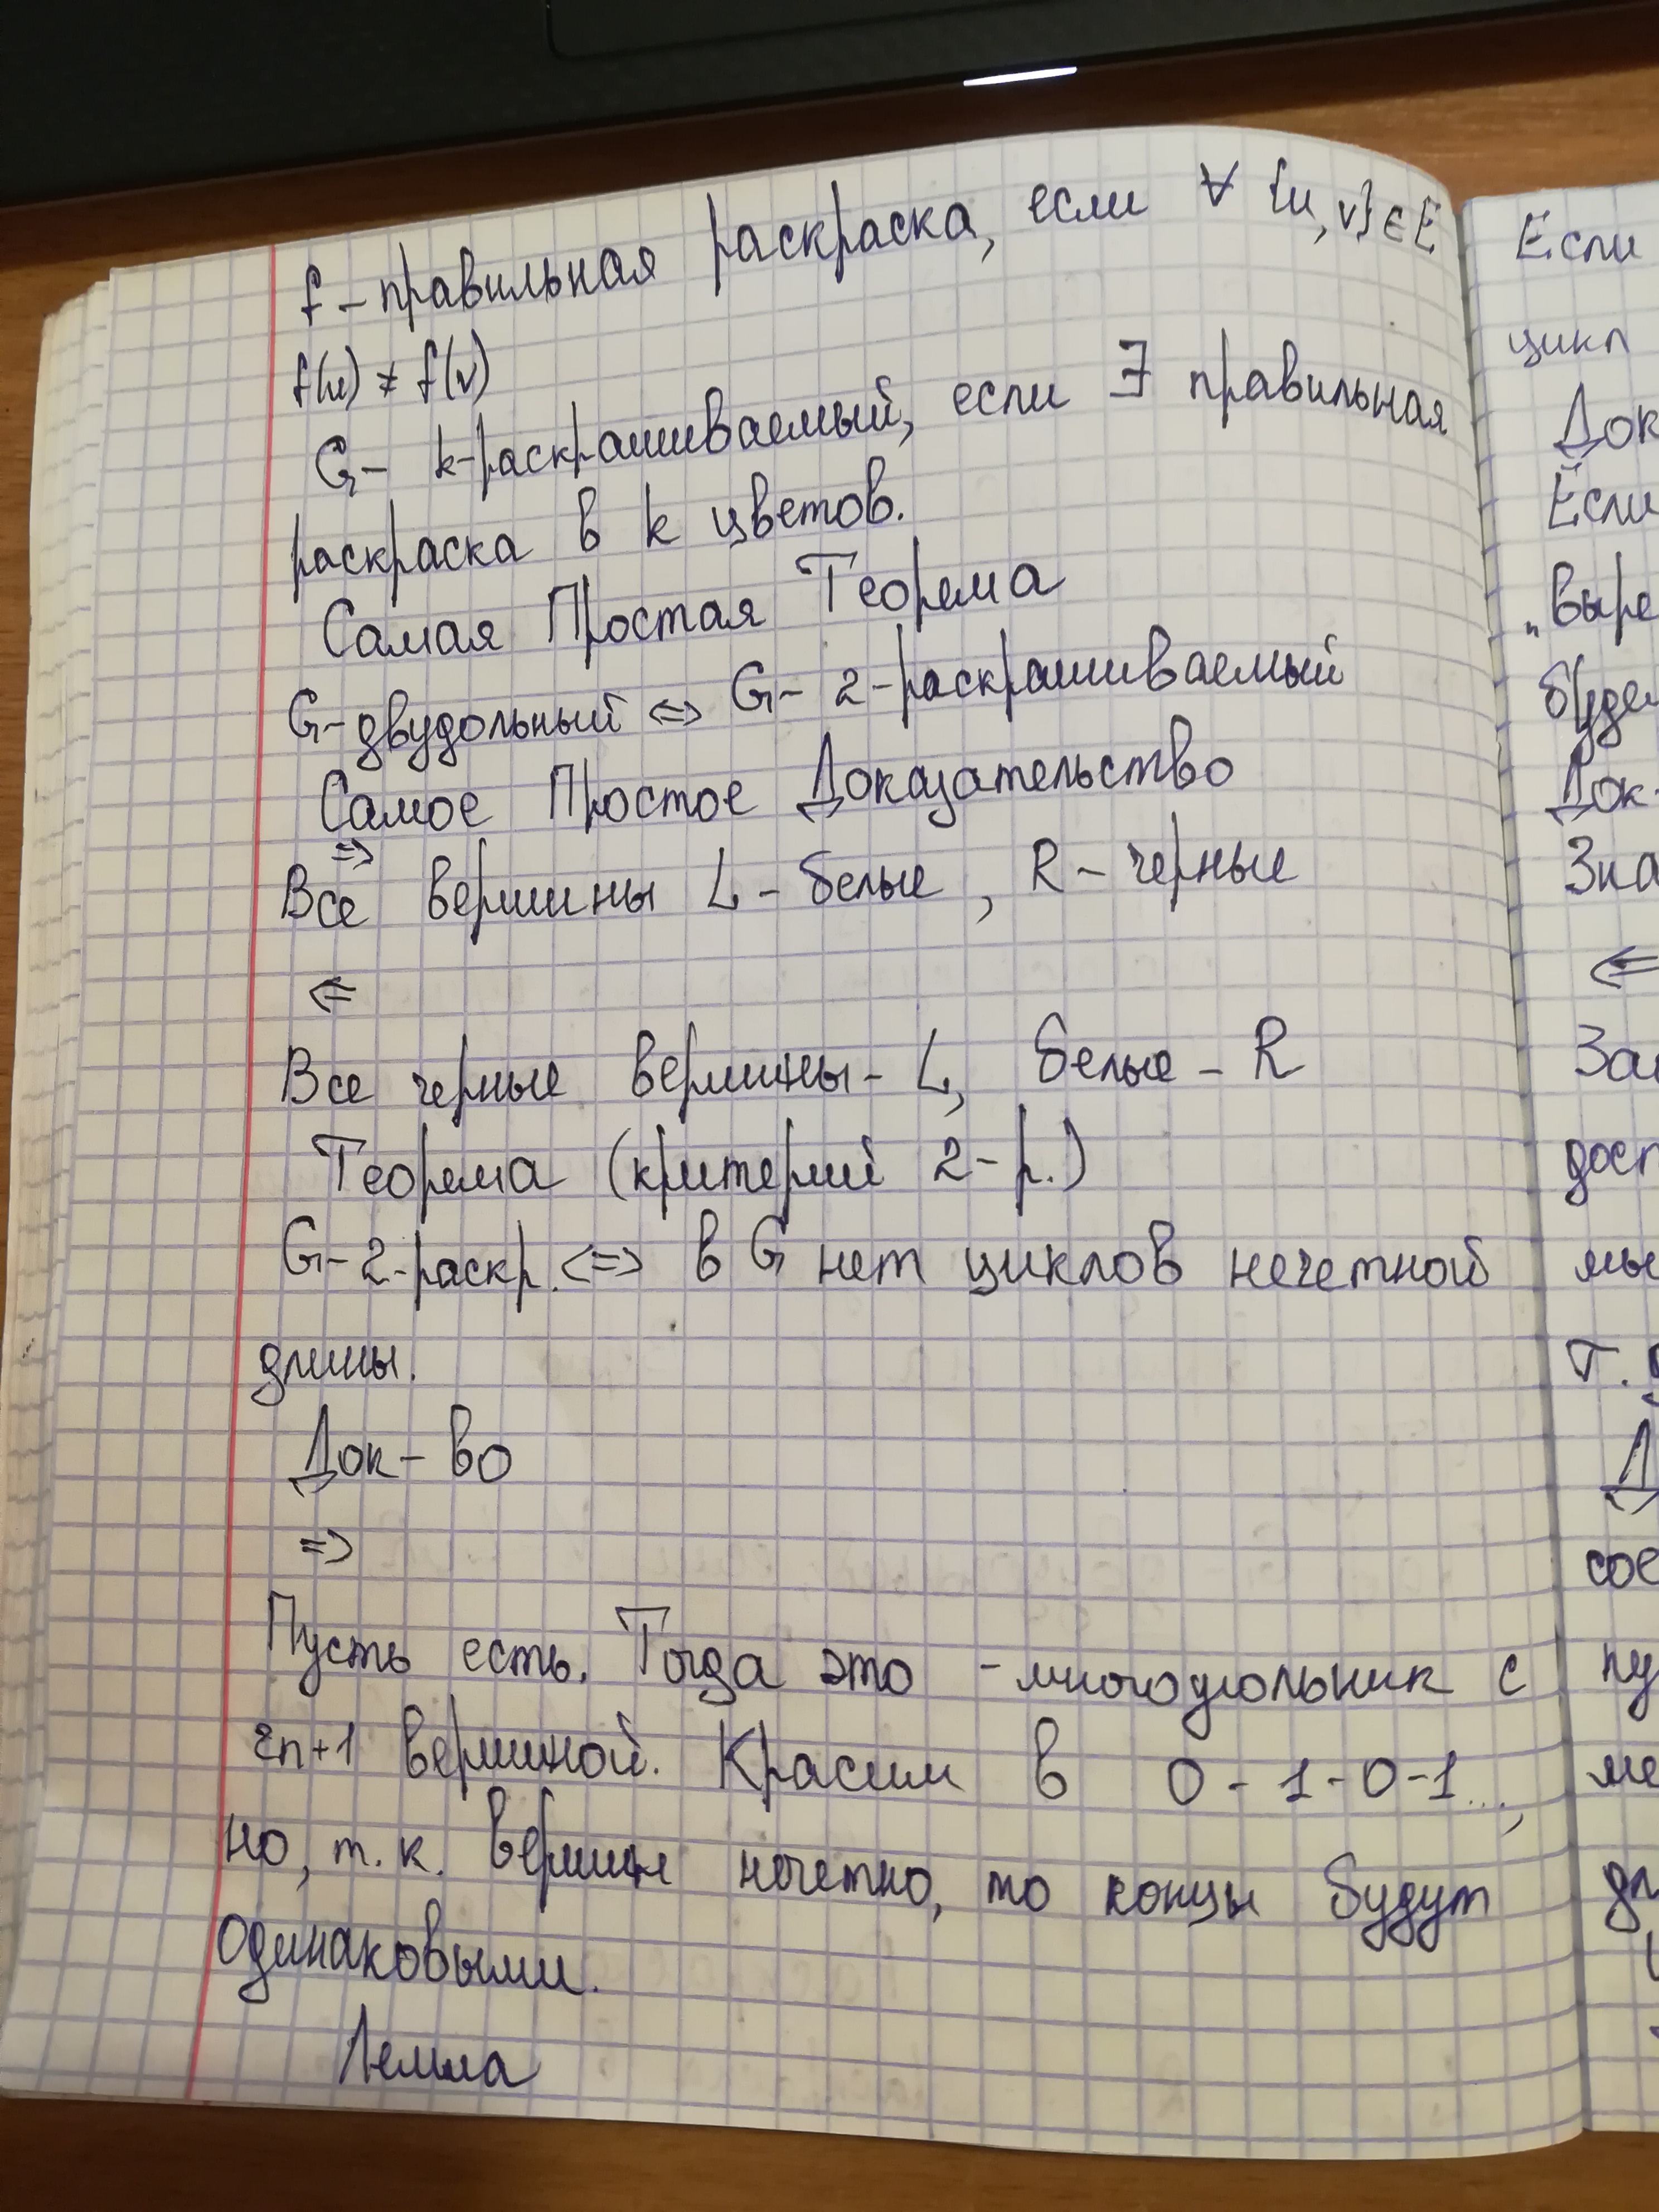 f – правильная раскраска, если ∀ {u, v} ∈ E
f(u) ≠ f(v)
G – k-раскрашиваемый, если ∃ правильная
раскраска в k цветов.
Самая Простая Теорема
G – двудольный ⇔ G – 2-раскрашиваемый
Самое Простое Доказательство
⇒
Все вершины L – белые, R – черные
⇐
Все черные вершины – L, белые – R
Теорема (критерий 2-р.)
G – 2-раскр. ⇔ в G нет циклов нечетной
длины.
Док-во
⇒
Пусть есть. Тогда это – многоугольник с
2n+1 вершиной. Красим в 0 - 1 - 0 - 1...,
но, т.к. вершин нечетно, то концы будут
одинаковыми.
Лемма
Если
цикл
Док
Если
„Выре
буде
Док-
Зна
⇐
дост
мы
Т.
Д
сое
пу
ме
дл